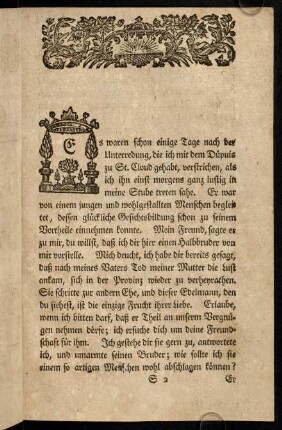 Es waren schon einige Tage nach der
Unterredung, die ich mit dem Düpuis
zu St. Cloud gehabt, verstrichen, als
ich ihn einst morgens ganz lustig in
meine Stube treten sahe. Er war
von einem jungen und wohlgestallten Menschen beglei-
tet, dessen glückliche Gesichtsbildung schon zu seinem
Vortheile einnehmen konnte. Mein Freund, sagte er
zu mir, du willst, daß ich dir hier einen Halbbruder von
mir vorstelle. Mich deucht, ich habe dir bereits gesagt,
daß nach meines Vaters Tod meiner Mutter die Lust
ankam, sich in der Provinz wieder zu verheyrathen.
Sie schritte zur andern Ehe, und dieser Edelmann, den
du siehest, ist die einzige Frucht ihrer Liebe. Erlaube,
wenn ich bitten darf, daß er Theil an unserm Vergnü-
gen nehmen dörfe; ich ersuche dich um deine Freund-
schaft für ihm. Ich gestehe dir sie gern zu, antwortete
ich, und umarmte seinen Bruder; wie sollte ich sie
einem so artigen Menschen wohl abschlagen können?
S 2 Er